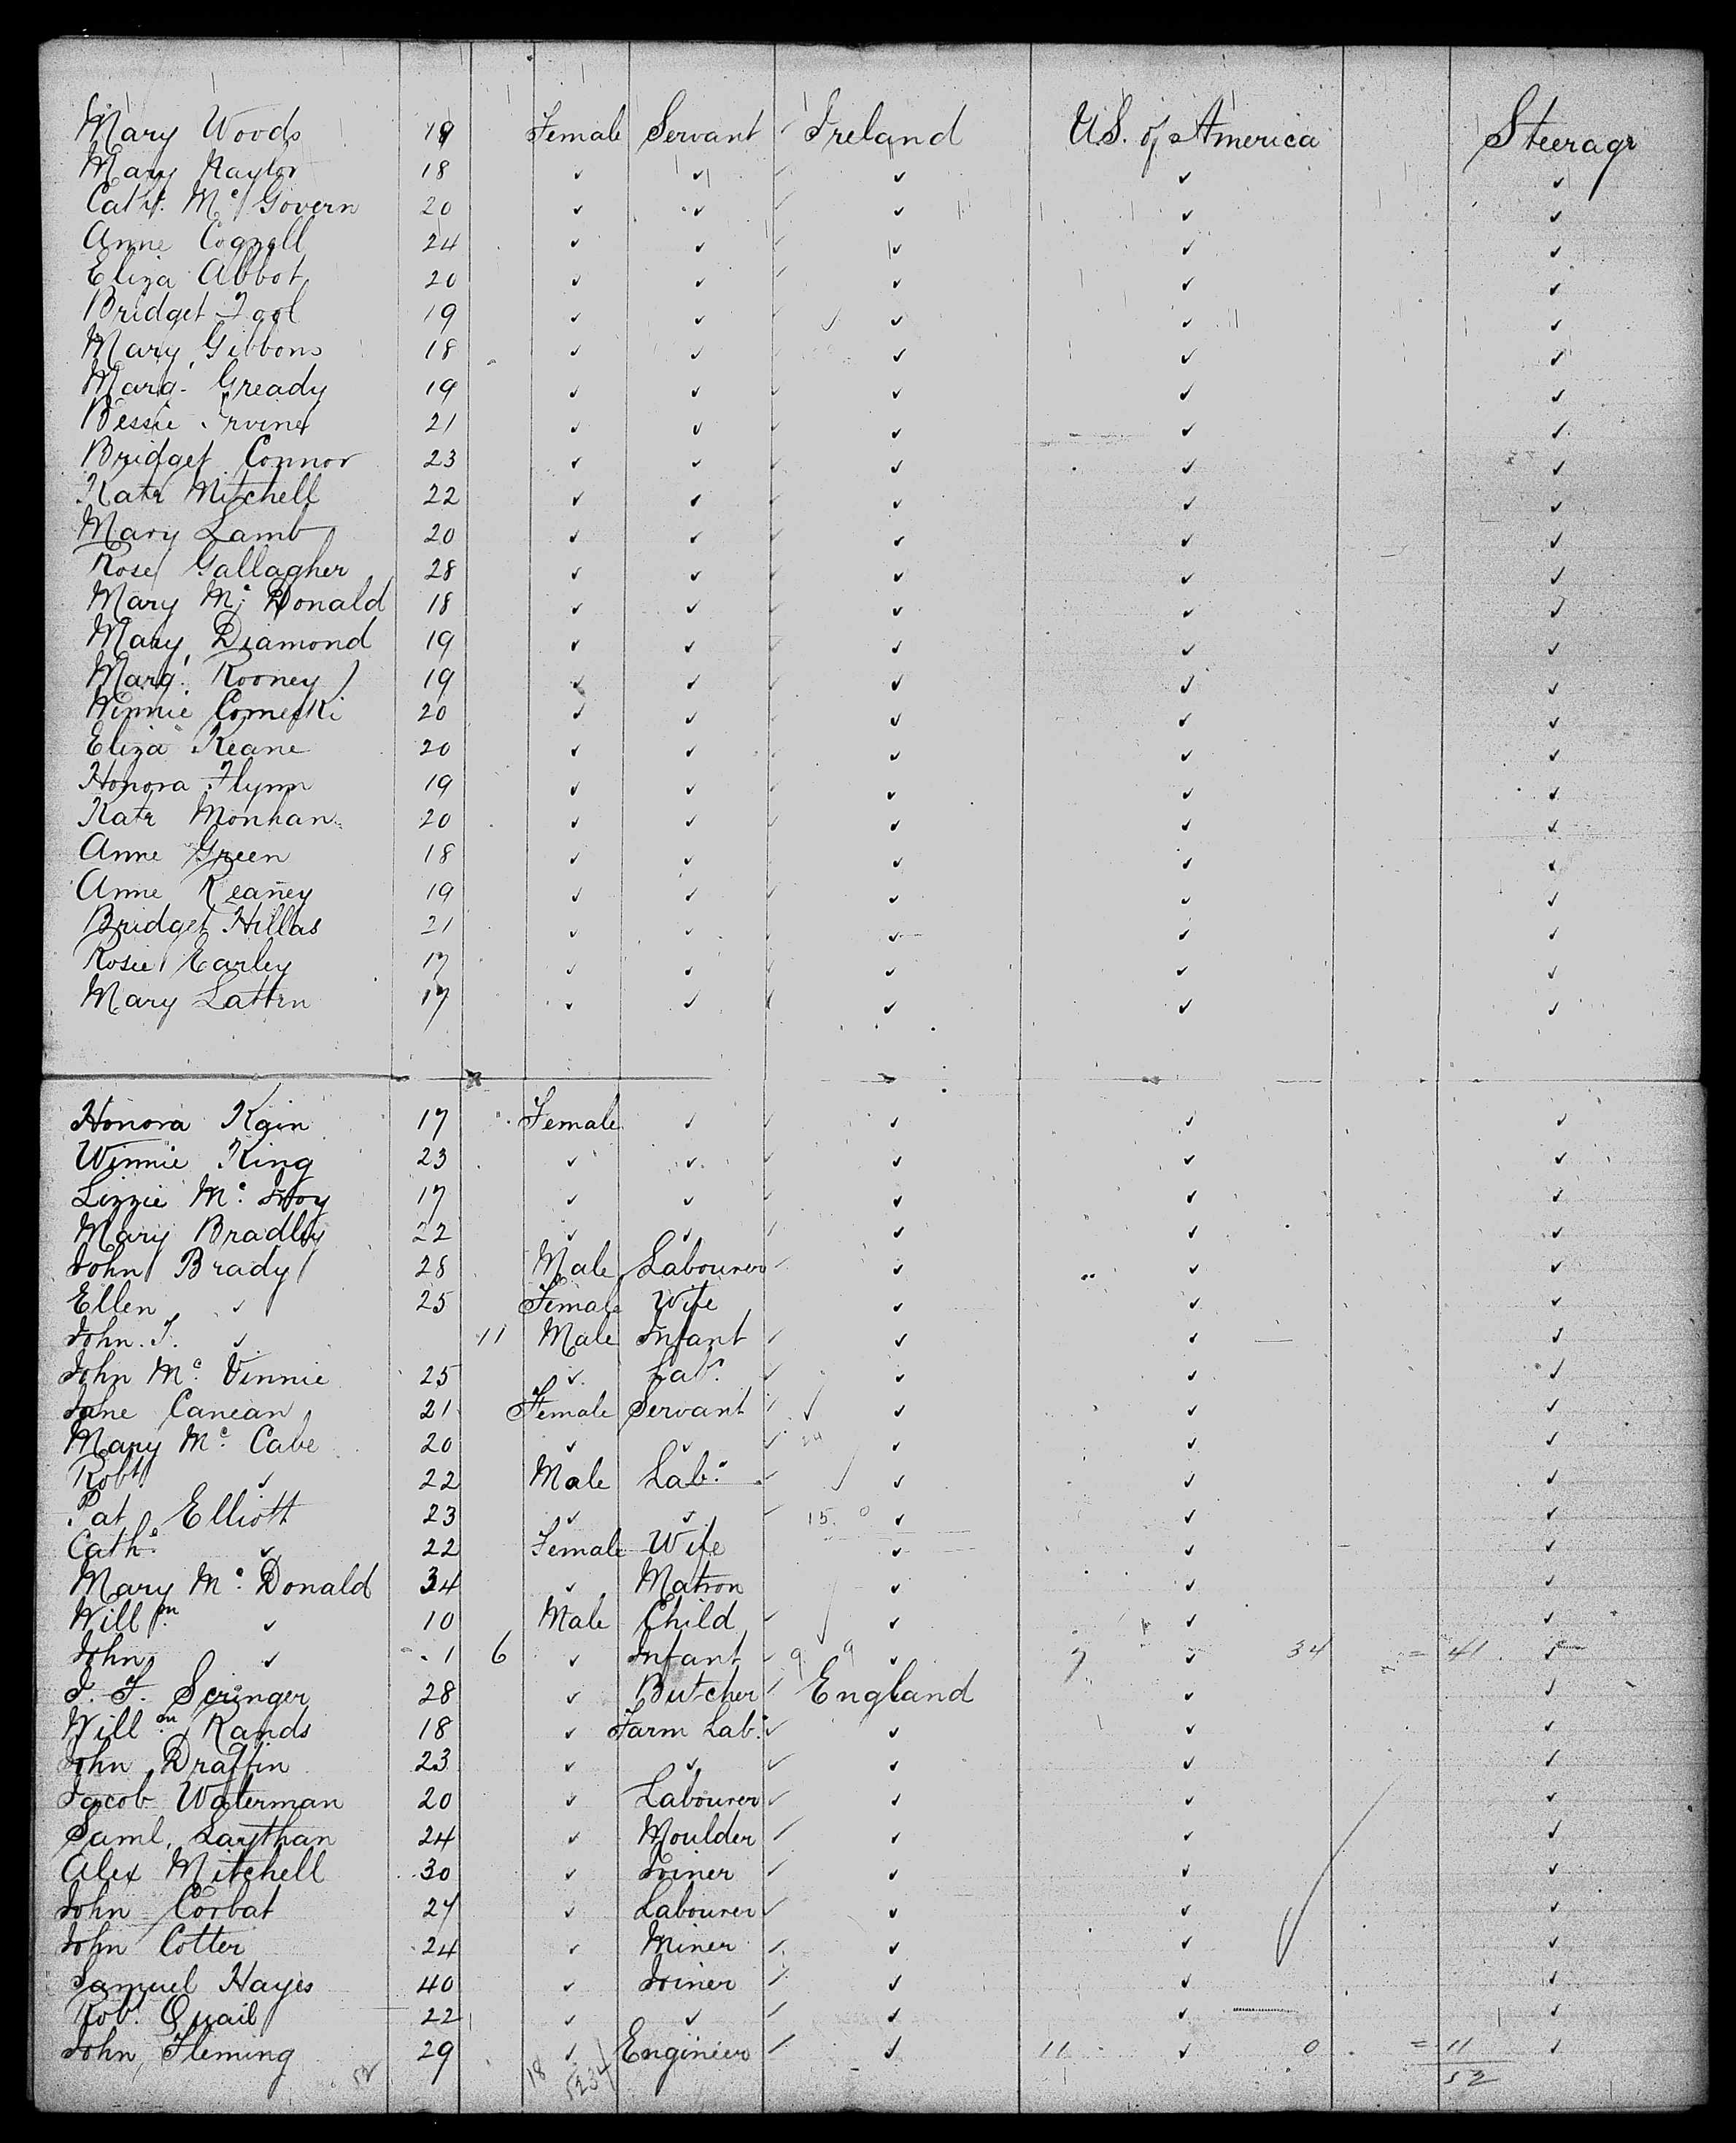 Mary Woods 19 Female Servant Ireland U.S. of America Steerage
Mary Naylor 18 ✓ ✓ ✓ ✓ ✓
Cath. Mc Govern 20 ✓ ✓ ✓ ✓ ✓
Anne Cogzell 24 ✓ ✓ ✓ ✓ ✓
Eliza Abbot 20 ✓ ✓ ✓ ✓ ✓
Bridget Tool 19 ✓ ✓ ✓ ✓ ✓
Mary Gibbons 18 ✓ ✓ ✓ ✓ ✓
Marg. Gready 19 ✓ ✓ ✓ ✓ ✓
Bessie Irvine 21 ✓ ✓ ✓ ✓ ✓
Bridget Connor 23 ✓ ✓ ✓ ✓ ✓
Kate Mitchell 22 ✓ ✓ ✓ ✓ ✓
Mary Lamb 20 ✓ ✓ ✓ ✓ ✓
Rose Gallagher 28 ✓ ✓ ✓ ✓ ✓
Mary Mc Donald 18 ✓ ✓ ✓ ✓ ✓
Mary Diamond 19 ✓ ✓ ✓ ✓ ✓
Marg. Rooney 19 ✓ ✓ ✓ ✓ ✓
Winnie Comeski 20 ✓ ✓ ✓ ✓ ✓
Eliza Keane 20 ✓ ✓ ✓ ✓ ✓
Honora Flynn 19 ✓ ✓ ✓ ✓ ✓
Kate Monhan 20 ✓ ✓ ✓ ✓ ✓
Anne Green 18 ✓ ✓ ✓ ✓ ✓
Anne Keaney 19 ✓ ✓ ✓ ✓ ✓
Bridget Hillas 21 ✓ ✓ ✓ ✓ ✓
Rosie Earley 17 ✓ ✓ ✓ ✓ ✓
Mary Latten 17 ✓ ✓ ✓ ✓ ✓
Honora Kain 17 Female ✓ ✓ ✓ ✓
Winnie King 23 ✓ ✓ ✓ ✓ ✓
Lizzie Mc 17 ✓ ✓ ✓ ✓ ✓
Mary Bradley 22 ✓ ✓ ✓ ✓ ✓
John Brady 28 Male Labourer ✓ ✓ ✓
Ellen ✓ 25 Female Wife ✓ ✓ ✓
John. T. ✓ 11 Male Infant ✓ ✓ ✓
John Mc Vinnie 25 ✓ Labr. ✓ ✓ ✓
Jane Canean 21 Female Servant ✓ ✓ ✓
Mary Mc Cabe 20 ✓ ✓ ✓ ✓ ✓
Robt ✓ 22 Male Labr. ✓ ✓ ✓
Pat Elliott 23 ✓ ✓ 15. 0 ✓ ✓ ✓
Cathe. ✓ 22 Female Wife ✓ ✓ ✓
Mary Mc Donald 34 ✓ Matron ✓ ✓ ✓
Willm ✓ 10 Male Child ✓ ✓ ✓
John ✓ 1 6 ✓ Infant 9 9 ✓ 7 ✓ 34 = 41 ✓
J. F. Scringer 28 ✓ Butcher England ✓ ✓
Willm Rands 18 ✓ Farm Labr. ✓ ✓ ✓
John Draffin 23 ✓ ✓ ✓ ✓ ✓
Jacob Waterman 20 ✓ Labourer ✓ ✓ ✓
Saml. Laythan 24 ✓ Moulder ✓ ✓ ✓
Alex Mitchell 30 ✓ Joiner ✓ ✓ ✓
John Corbat 27 ✓ Labourer ✓ ✓ ✓
John Cotter 24 ✓ Miner ✓ ✓ ✓
Samuel Hayes 40 ✓ Joiner ✓ ✓ ✓
Robt. Quail 22 ✓ ✓ ✓ ✓ ✓
John Fleming 29 ✓ Engineer ✓ 11 ✓ 0 = 11 ✓
52 18 34 52